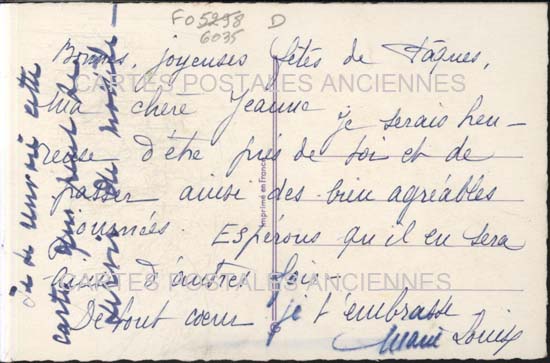 FO 5298 D
6035
Bonnes, joyeuses fêtes de Pâques,
CARTES POSTALES ANCIENNES
ma chère Jeanne
Je serais heu-
reuse d'être près de toi et de
passer ainsi des bien agréables
journées. Espérons qu'il en sera
ainsi d'autres fois -
CARTES POSTALES ANCIENNES
De tout coeur je t'embrasse
Marie Louise
Imprimé en France
carte